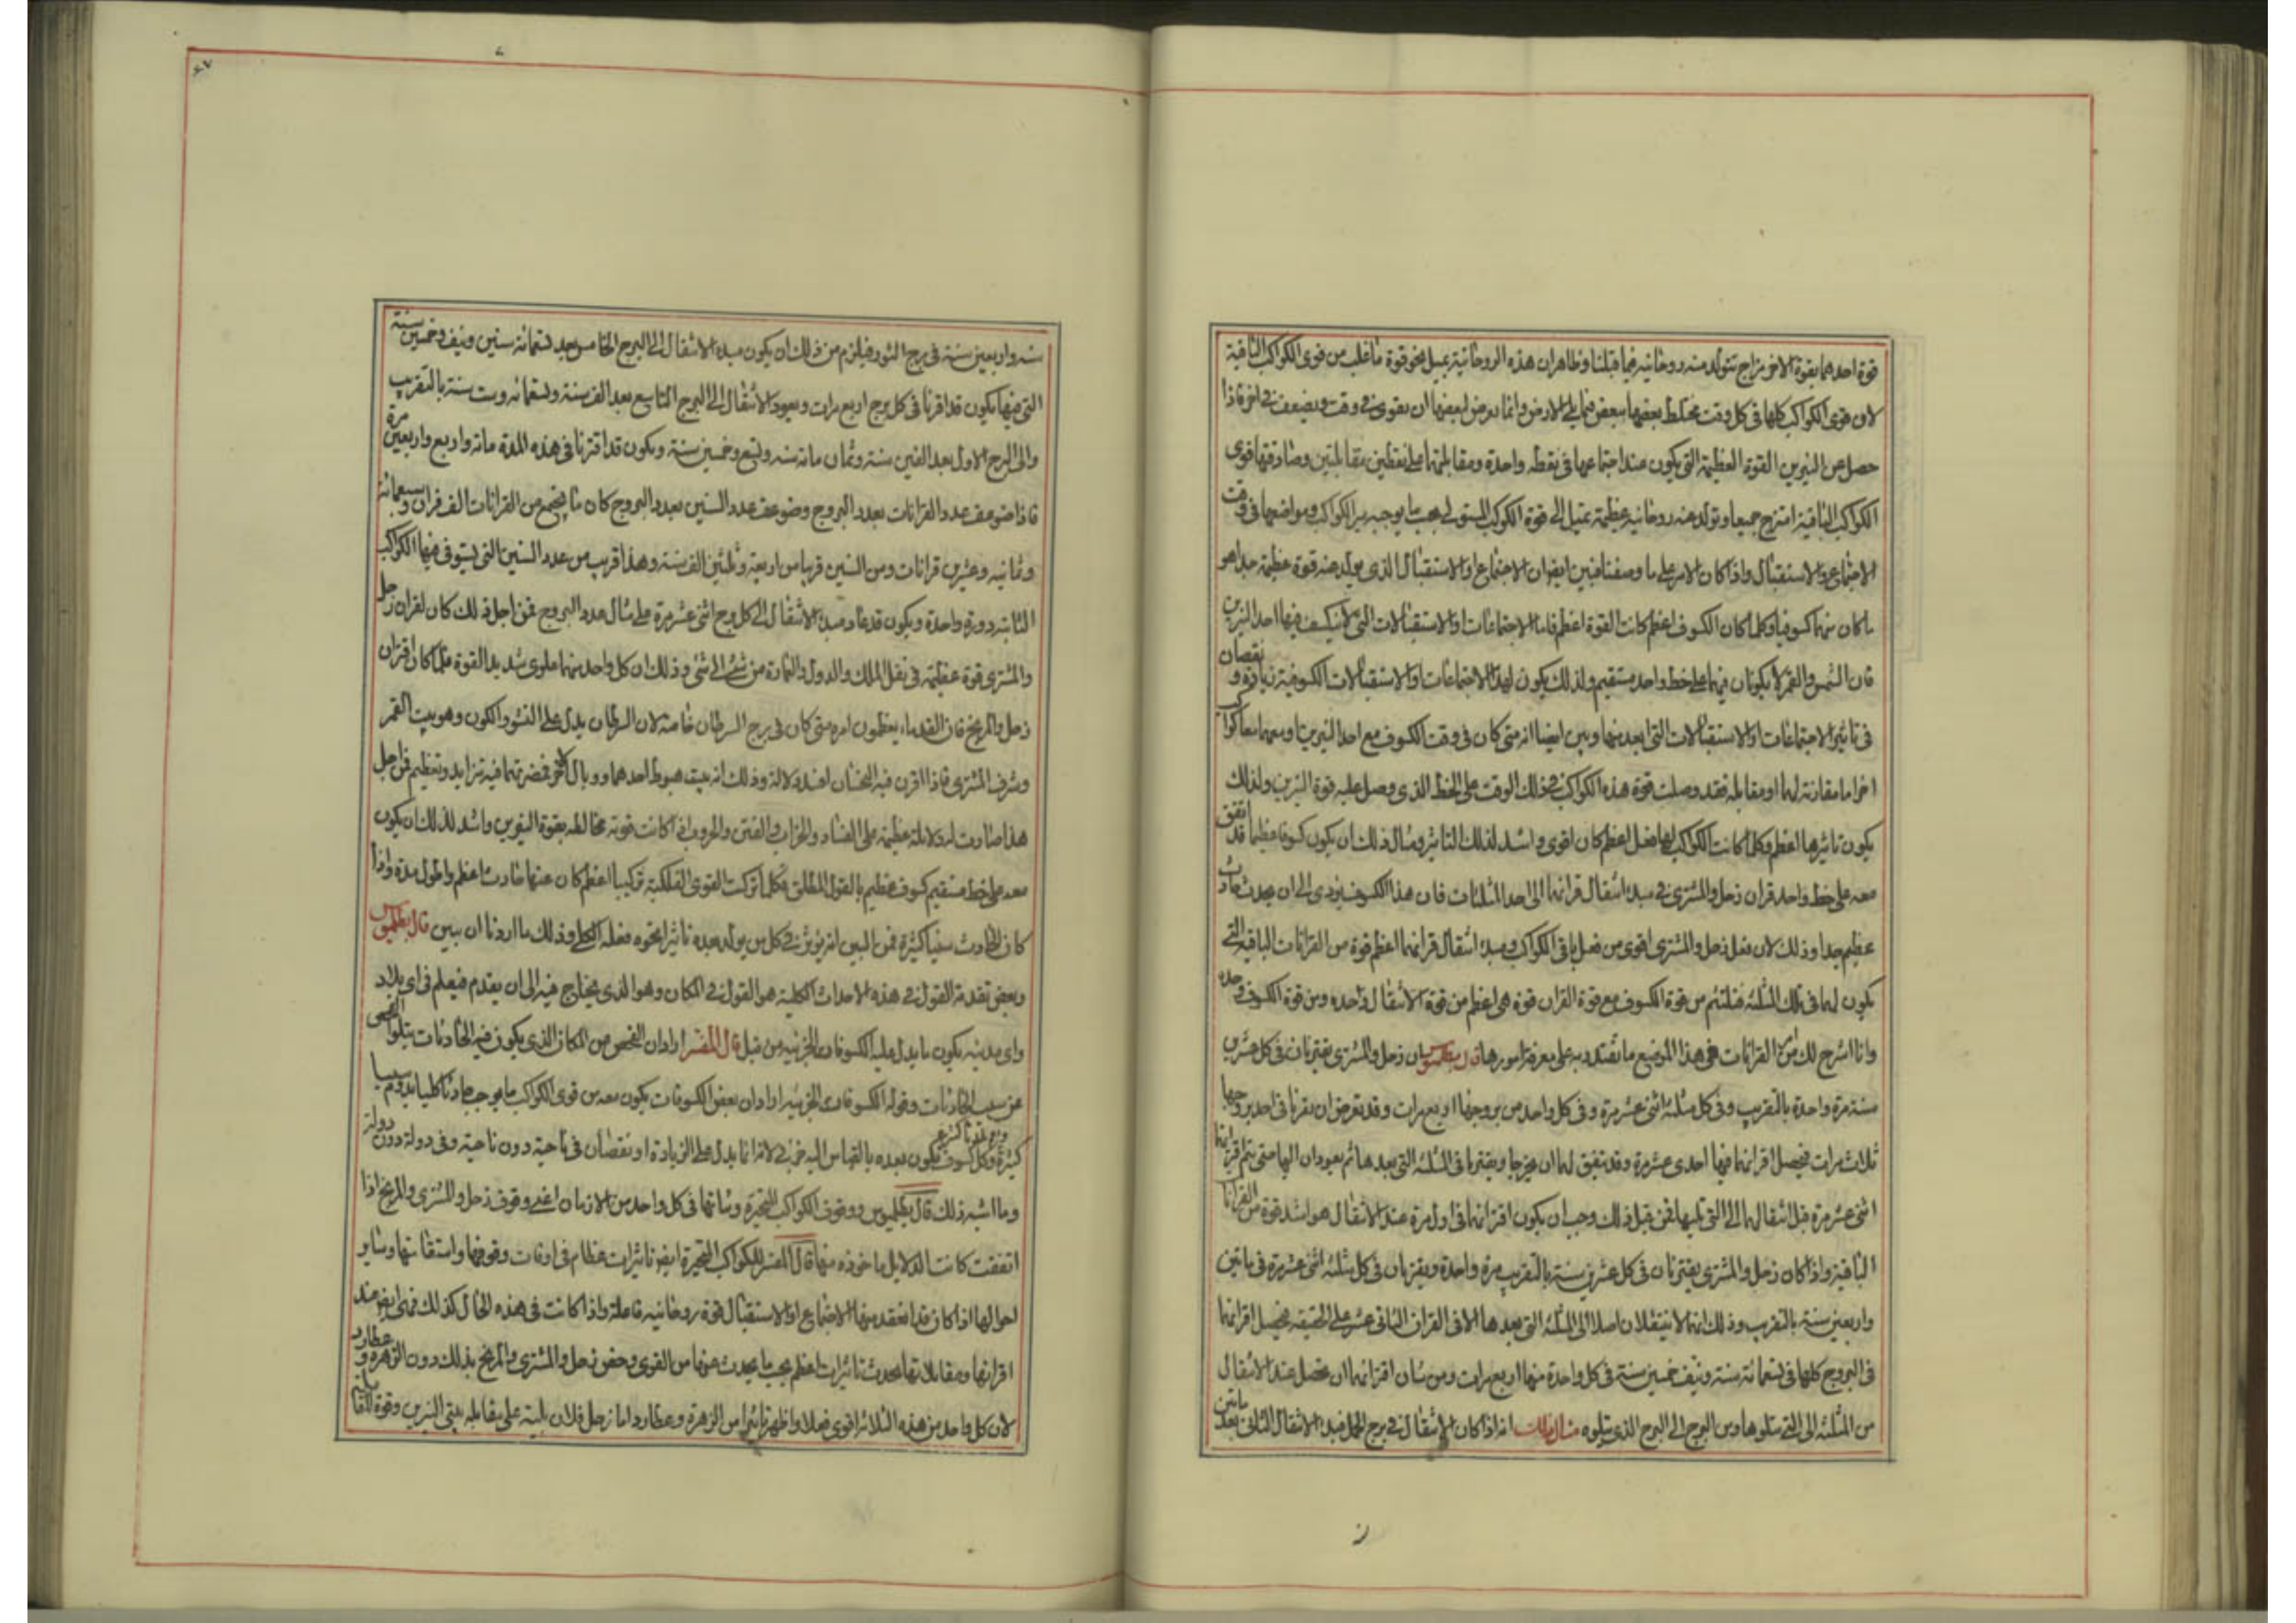 قوة احدهما بقوة الاخر مزاج تتولد منه روحانية فيما قبلنا وظاهر ان هذه الروحانية يميل نحو قوة ما غلب من قوى الكواكب الباقية
لان قوى الكواكب كلها فى كل وقت مختلط بعضها ببعض فيما يلى الارض وانما يعرض لبعضها ان يقوى فى وقت ويضعف فى اخر فاذا
حصل من النيرين القوة العظيمة التى يكون عند اجتماعهما فى نقطه واحدة ومقابلتهما على نقطتين مقابلتين وصادفتها قوى
الكواكب الباقية امتزج جميعا وتولد عنه روحانيه عظيمة تميل الى قوة الكواكب المستولى بحسب ما يوجبه سير الكواكب ومواضعها فى وقت
الاجتماع والاستقبال واذا كان الامر على ما وصفنا فبين ايضا ان الاجتماع او الاستقبال الذى يتولد عنه قوة عظيمة جدا هو
ما كان منهما كسوفيا وكلما كان الكسوف اعظم كانت القوة اعظم فاما الاجتماعات او الاستقبالات التى لا ينكسف فيها احد النيرين
فان الشمس والقمر لا يكونان فيهما على خط واحد مستقيم ولذلك يكون لهذه الاجتماعات او الاستقبالات الكسوفية زيادة و نقصان
فى تاثير الاجتماعات او الاستقبالات التى بعد منها وبين ايضا انه متى كان فى وقت الكسوف مع احد النيرين او معهما معا كواكب
اخر اما مقارنة لهما او مقابله فقد وصلت قوة هذه الكواكب فى ذلك الوقت على الخط الذى وصل عليه قوة النيرين ولذلك
يكون تاثيرها اعظم وكلما كانت الكواكب لها فعل اعظم كان اقوى واشد لذلك التاثير ومثال ذلك ان يكون كسوفا عظيما قد اتفق
معه على خط واحد قران زحل والمشترى فى مبدا انتقال قرانهما الى احد المثلثات فان هذا الكسوف يؤدى الى ان يحدث حادث
عظيم جدا وذلك لان فعل زحل والمشترى اقوى من فعل باقى الكواكب ومبدا انتقال قرانهما اعظم قوة من القرانات الباقية التى
يكون لهما فى تلك المثلثه فتلتئم من قوة الكسوف مع قوة القران قوة هى اعظم من قوة الانتقال وحده ومن قوة الكسوف وحده
وانا اشرح لك من القرانات فى هذا الموضع ما تقتدر به على معرفة امورها قال بطلميوس ان زحل والمشترى يقترنان فى كل عشرين
سنة مرة واحدة بالتقريب وفى كل مثلثه اثنى عشر مرة وفى كل واحد من بروجها اربع مرات وقد تعرض ان يقرنا فى احد بروجها
ثلاث مرات فيحصل اقرانهما فيها احدى عشر مرة وقد يتفق لهما ان يخرجا ويقترنا فى المثلثه التى بعدها ثم يعودان اليها حتى يتم اقرانهما
اثنى عشر مرة قبل انتقالهما الى التى تليها فمن قبل ذلك وجب ان يكون اقترانهما فى اول مرة عند الانتقال هو اشد قوة من القرانات
الباقية واذا كان زحل والمشترى يقترنان فى كل عشرين سنة بالتقريب مرة واحدة ويقترنان فى كل مثلثه اثنى عشر مرة فى ماتين
واربعين سنة بالتقريب وذلك انهما لا ينتقلان اصلا الى المثلثه التى بعدها الا فى القران الثانى عشر على الحقيقه فيحصل اقرانهما
فى البروج كلها فى تسعمائة سنة ونيف خمسين سنة فى كل واحدة منها اربع مرات ومن شان اقترانهما ان يحصل عند الانتقال
من المثلثه الى التى تتلوها ومن البرج الى البرج الذى يتلوه مثال ذلك انه اذا كان الانتقال فى برج الحمل فمبدا الانتقال الثانى بعد ماتين
سنه واربعين سنة فى برج الثور فيلزم من ذلك ان يكون مبدء الانتقال الى البرج الخامس بعد تسعمائة سنين ونيف وخمسين سنة
التى فيها يكون قد اقرنا فى كل برج اربع مرات ويعود الانتقال الى البرج التاسع بعد الف سنة وتسعمائه وست سنة بالتقريب
والى البرج الاول بعد الفين سنة وثمان مائة سنه وتسع وخمسين سنة ويكون قد اقترنا فى هذه المدة مائة واربع واربعين مرة
فاذا ضوعف عدد القرانات بعدد البروج وضوعف عدد السنين بعدد البروج كان ما يجتمع من القرانات الف قران وسبعمائة
وثمانيه وعشرين قرانات ومن السنين قريبا من اربعة وثلثين الف سنة وهذا قريب من عدد السنين التى يستوفى فيها الكواكب
الثابته دورة واحدة ويكون قد عاد مبدء الانتقال الى كل برج اثنى عشر مرة على مثال عدد البروج فمن اجل ذلك كان لقران زحل
والمشترى قوة عظيمة فى نقل الملك والدول والعادة من شئ الى شئ وذلك ان كل واحد منهما علوى شديد القوة فلما كان اقتران
زحل والمريخ فان القدماء يعظمون امره متى كان فى برج السرطان خاصة لان السرطان يدل على النشو والكون وهو بيت القمر
وشرف المشترى فاذا اقرن فيه النحسان لهذه الدلالة وذلك انه بيت هبوط احدهما ووبال الاخر فمضرتهما فيه تتزايد وتعظيم فمن اجل
هذا صارت له دلالة عظيمة على الفساد والخراب والفتن والحروب اذا كانت قوته مخالطه بقوة النيرين واشد لذلك ان يكون
معه على خط مستقيم كسوف عظيم بالقول المطلق وكلما تركبت القوى الفلكية تركيبا اعظم كان عنها حادث اعظم واطول مدة واذا
كان الحادث سفيا كثيرة فمن البين انه يؤثر فى كل من يولد بعده تاثيرا نحوه فعله الكلى وذلك ما اردنا ان نبين قال بطلميوس
وبعض تقدمة القول فى هذه الاحداث الكلية هو القول فى المكان وهو الذى يحتاج فيه الى ان يقدم فيعلم فى اى بلاد
واى مدينه يكون ما يدل عليه الكسوفات الجزئيه من قبل قال المفسر اراد ان الفحص من المكان الذى يكون فيه الحادثات يتلوا الفحص
عن سبب الحادثات وقوله الكسوفات الجزئيه اراد ان بعض الكسوفات يكون معه من قوى الكواكب ما يوجب حادثا كليا يدوم سنينا
كثيرة وكل كسوف يكون بعده بالقياس اليه جزئى لانه انما يدل على الزيادة او نقصان فى ناحية دون ناحية وفى دولة دون دولة
وما اشبه ذلك قال بطلميوس ووقوف الكواكب المتحيرة وثباتها فى كل واحد من الازمان اعنى وقوف زحل والمشترى والمريخ اذا
اتفقت كانت الدلايل ماخوذه منها قال المفسر للكواكب المتحيرة ايضا تاثيرات عظام فى اوقات وقوفها واستقامتها وساير
احوالها اذا كان قد انعقد منها الاجتماع او الاستقبال قوة روحانيه فاعلة واذا كانت فى هذه الحال كذلك فهى ايضا عند
اقرانها ومقابلاتها يحدث تاثيرات اعظم بحسب ما يحدث عنها من القوى وخص زحل والمشترى والمريخ بذلك دون الزهرة و عطارد
لان كل واحد من هذه الثلاثة اقوى فعلا واظهر تاثيرا من الزهرة وعطارد اما زحل فلان بيته على مقابله بيتى النيرين وقوة المقابلة